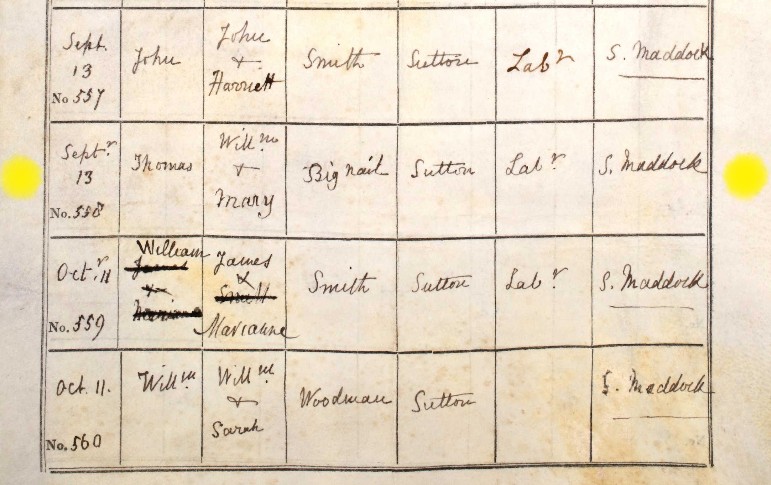 Sept. 13 No 557 John John & Harriett Smith Sutton Labr S. Maddock
Septr. 13 No. 558 Thomas Willm & Mary Bignail Sutton Labr S. Maddock
Octr. 11 No. 559 William James & Marianne James & Smith Marianne Smith Sutton Labr S. Maddock
Oct. 11. No. 560 Willm Willm & Sarah Woodman Sutton S. Maddock